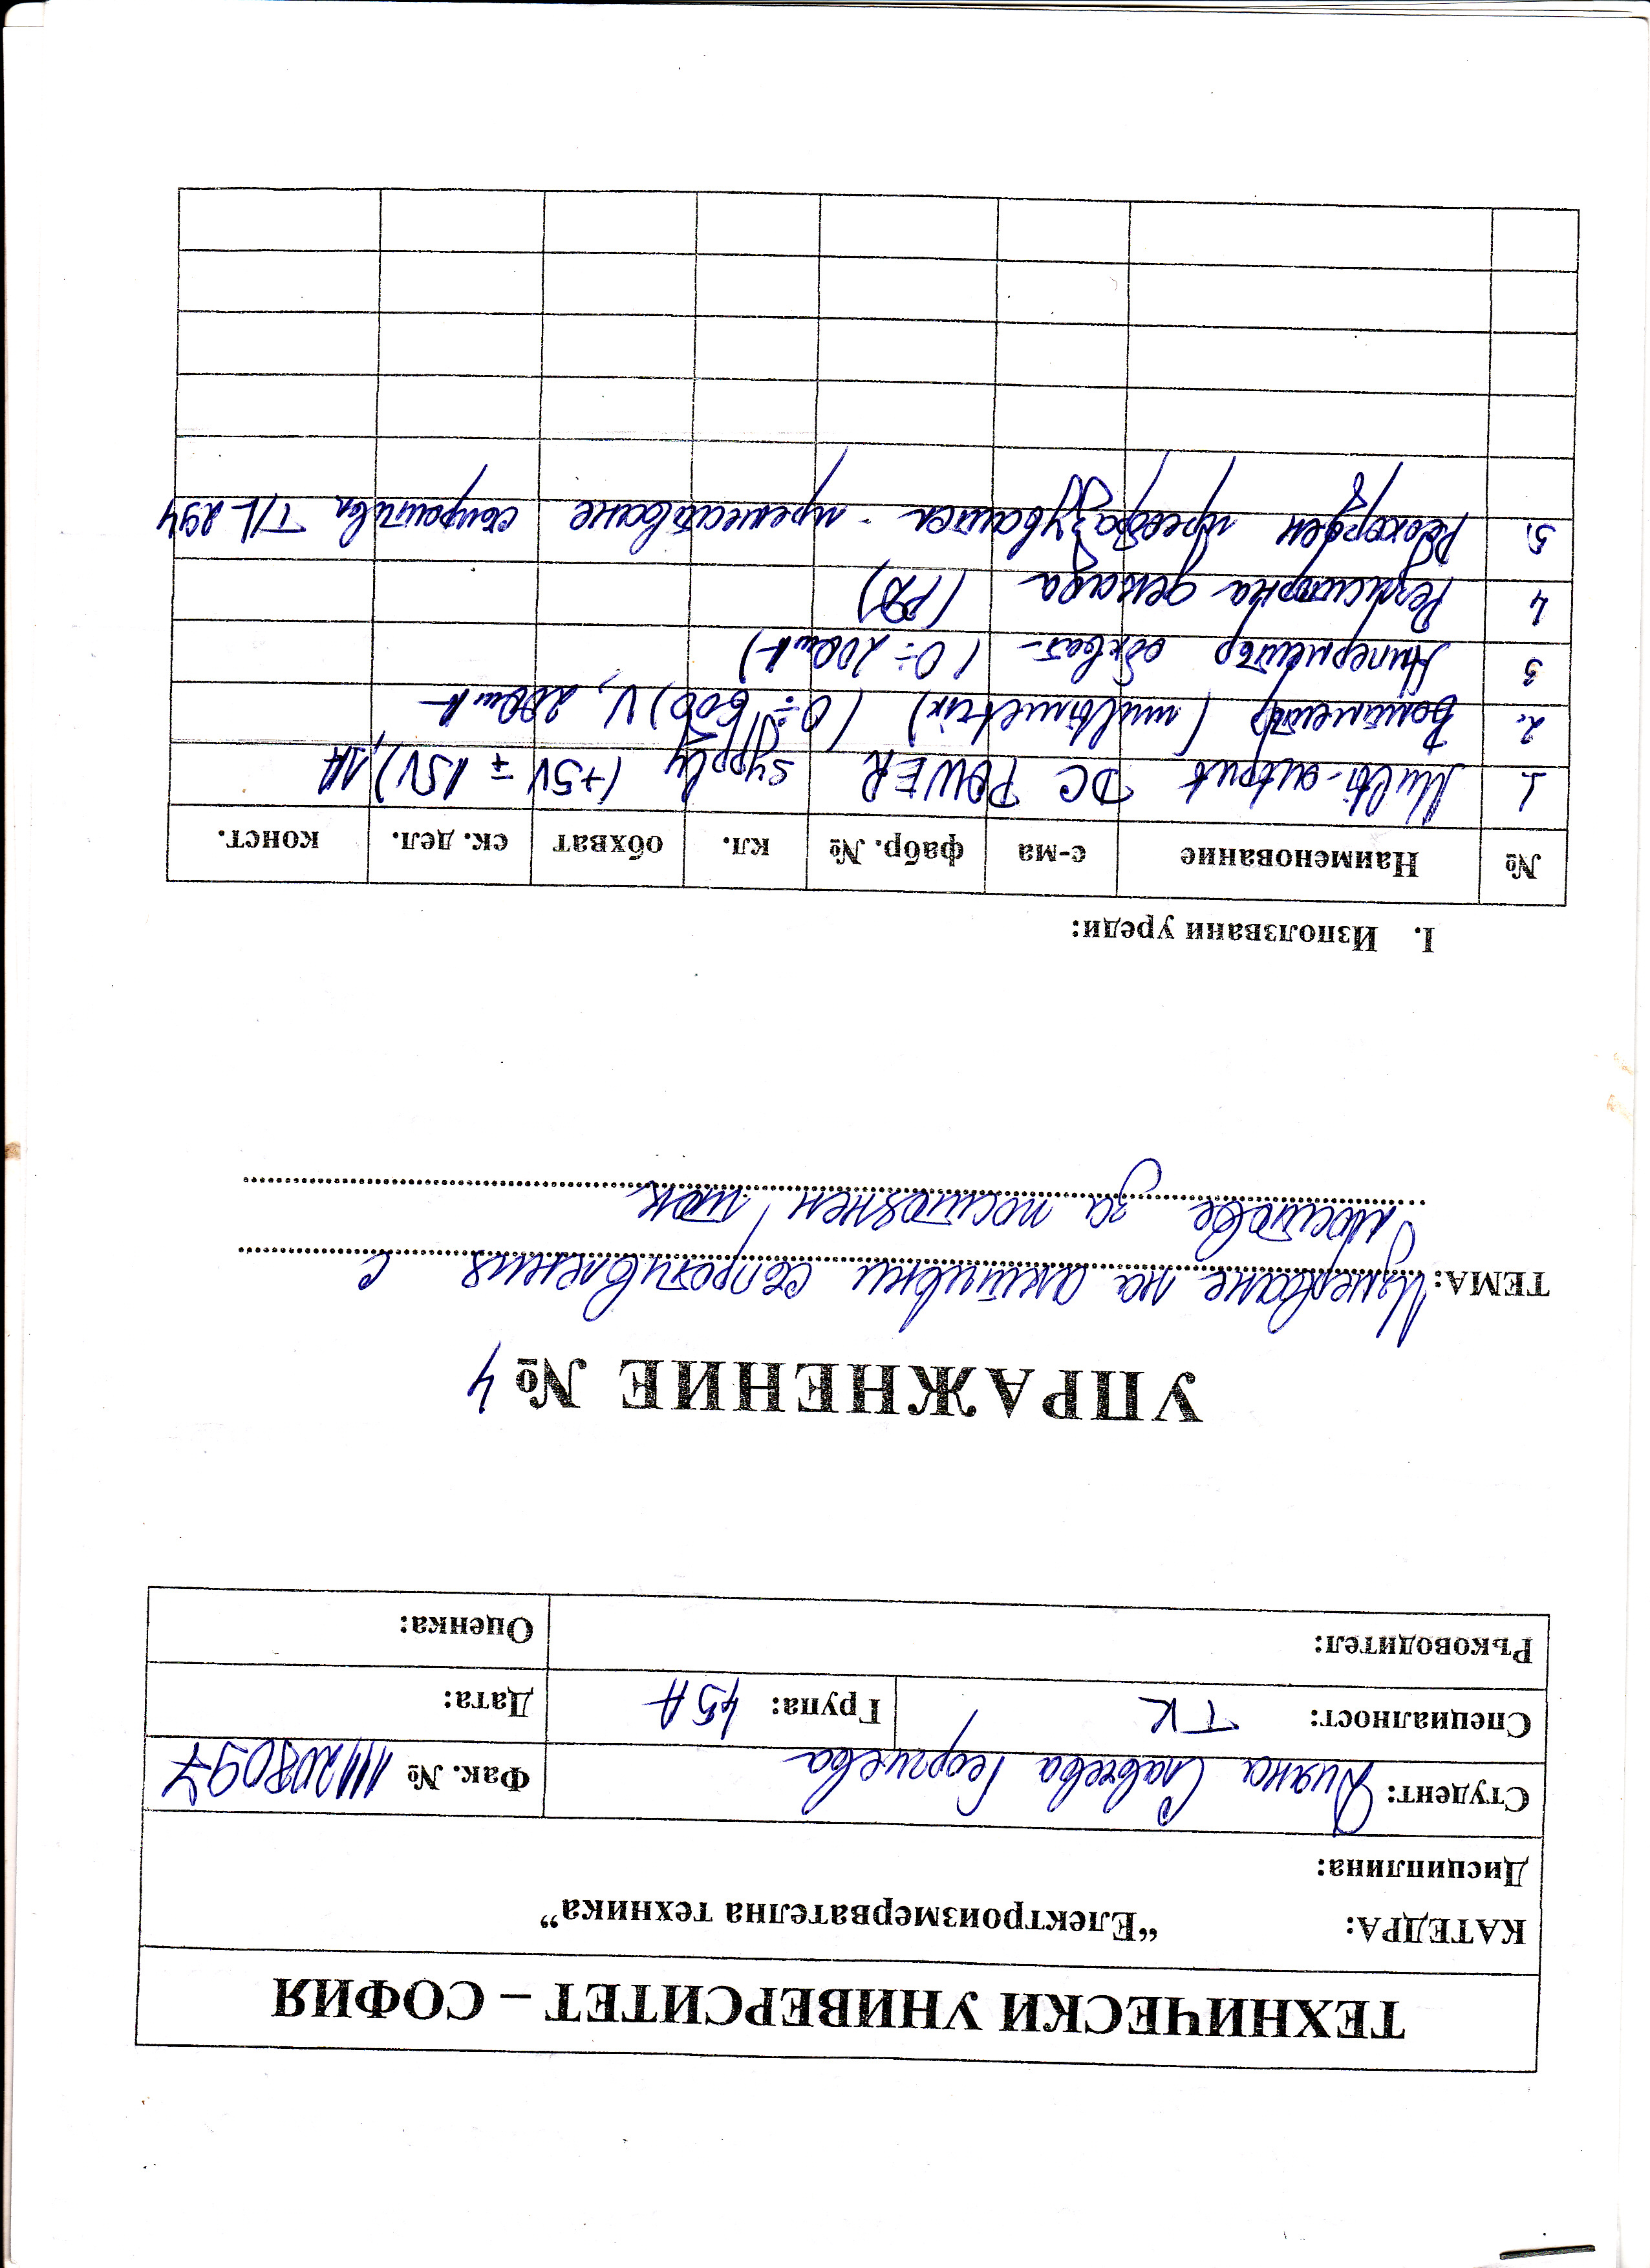 ТЕХНИЧЕСКИ УНИВЕРСИТЕТ – СОФИЯ
КАТЕДРА: “Електроизмервателна техника”
Дисциплина:
Студент: Диана Славчева Георгиева Фак. № 111208097
Специалност: ТК Група: 45А Дата:
Ръководител: Оценка:
УПРАЖНЕНИЕ № 4
ТЕМА: Измерване на активни съпротивления с
мостове за постоянен ток
1. Използвани уреди:
№ Наименование с-ма фабр. № кл. обхват ск. дел. конст.
1 Multi-output DC POWER Sypply (+5V ∓ 15V), 1A
2. Волтметър (multimetrix) (0÷600)V, 200mA
3 Амперметър обхват- (0÷200mA)
4 Резисторна декада (РД)
5. Реохорден преобразувател - преместване съпротивл T/L 294